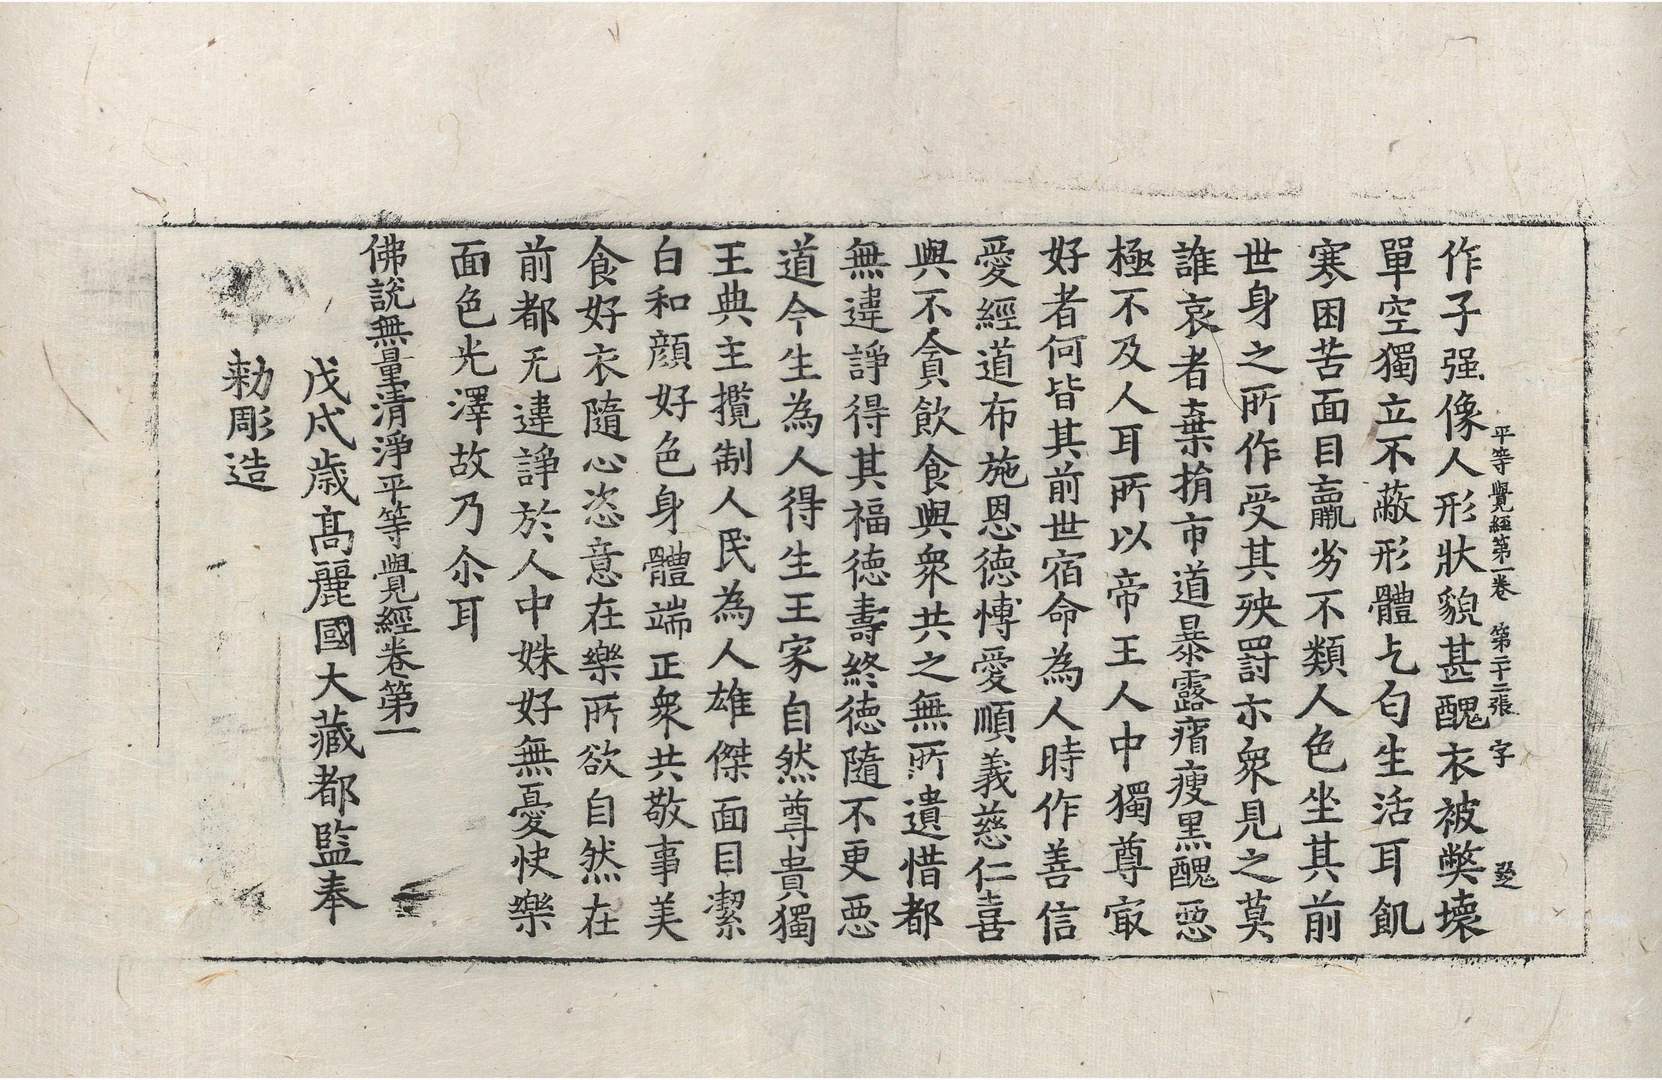 平等覺經第一卷 第二十二張 字
作子强像人形狀貌甚醜衣被弊壞
單空獨立不蔽形體乞匂生活耳飢
寒困苦面目羸劣不類人色坐其前
世身之所作受其殃罸亦衆見之莫
誰哀者棄捐市道暴露瘠瘦黒醜惡
極不及人耳所以帝王人中獨尊㝡
好者何皆其前世宿命為人時作善信
愛經道布施恩徳慱愛順義慈仁喜
與不貪飲食與衆共之無所遺惜都
無違諍得其福徳壽終徳隨不更惡
道今生為人得生王家自然尊貴獨
王典主攬制人民為人雄傑面目潔
白和顔好色身體端正衆共敬事美
食好衣隨心恣意在樂所欲自然在
前都无違諍於人中姝好無憂快樂
面色光澤故乃尒耳
佛說無量清淨平等覺經卷第一
戊戌歳髙麗國大藏都監奉
勅彫造